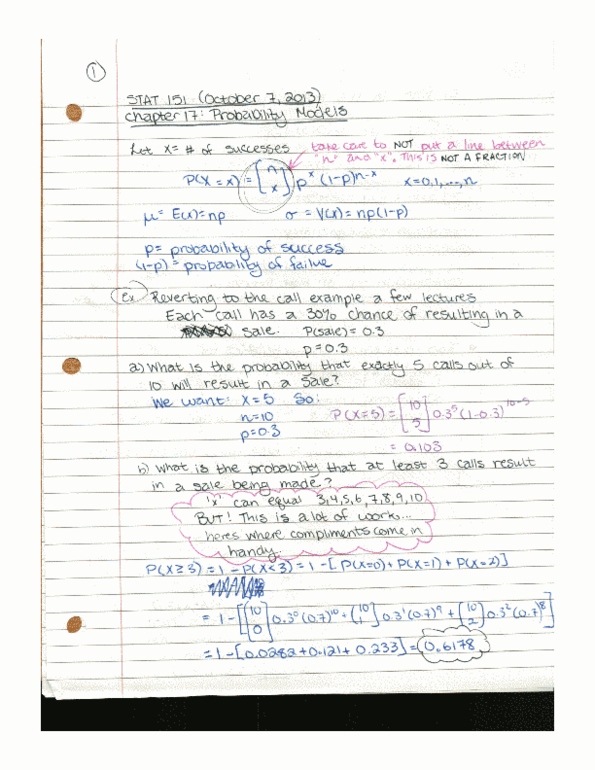 1
STAT 151 (October 7, 2013)
Chapter 17: Probability Models
Let X = # of successes
take care to NOT put a line between
"n" and "x". THIS IS NOT A FRACTION
P(X = x) = [n x] p^x (1-p)^n-x    x=0,1,...,n
μ = E(x) = np    σ = V(x) = np(1-p)
p = probability of success
(1-p) = probability of failure
Ex Reverting to the call example a few lectures
Each call has a 30% chance of resulting in a
sale. P(sale) = 0.3
p = 0.3
a) What is the probability that exactly 5 calls out of
10 will result in a sale?
We want: X = 5 So:
n=10    P(X=5) = [10 5] 0.3^5 (1-0.3)^10-5
p=0.3
= 0.103
b) What is the probability that at least 3 calls result
in a sale being made?
'x' can equal 3,4,5,6,7,8,9,10
BUT! This is a lot of work...
heres where compliments come in
handy.
P(X≥3) = 1 - P(X<3) = 1 - [P(X=0) + P(X=1) + P(X=2)]
= 1 - [[10 0] 0.3^0 (0.7)^10 + [10 1] 0.3^1 (0.7)^9 + [10 2] 0.3^2 (0.7)^8]
= 1 - [0.0282 + 0.121 + 0.233] = 0.6178